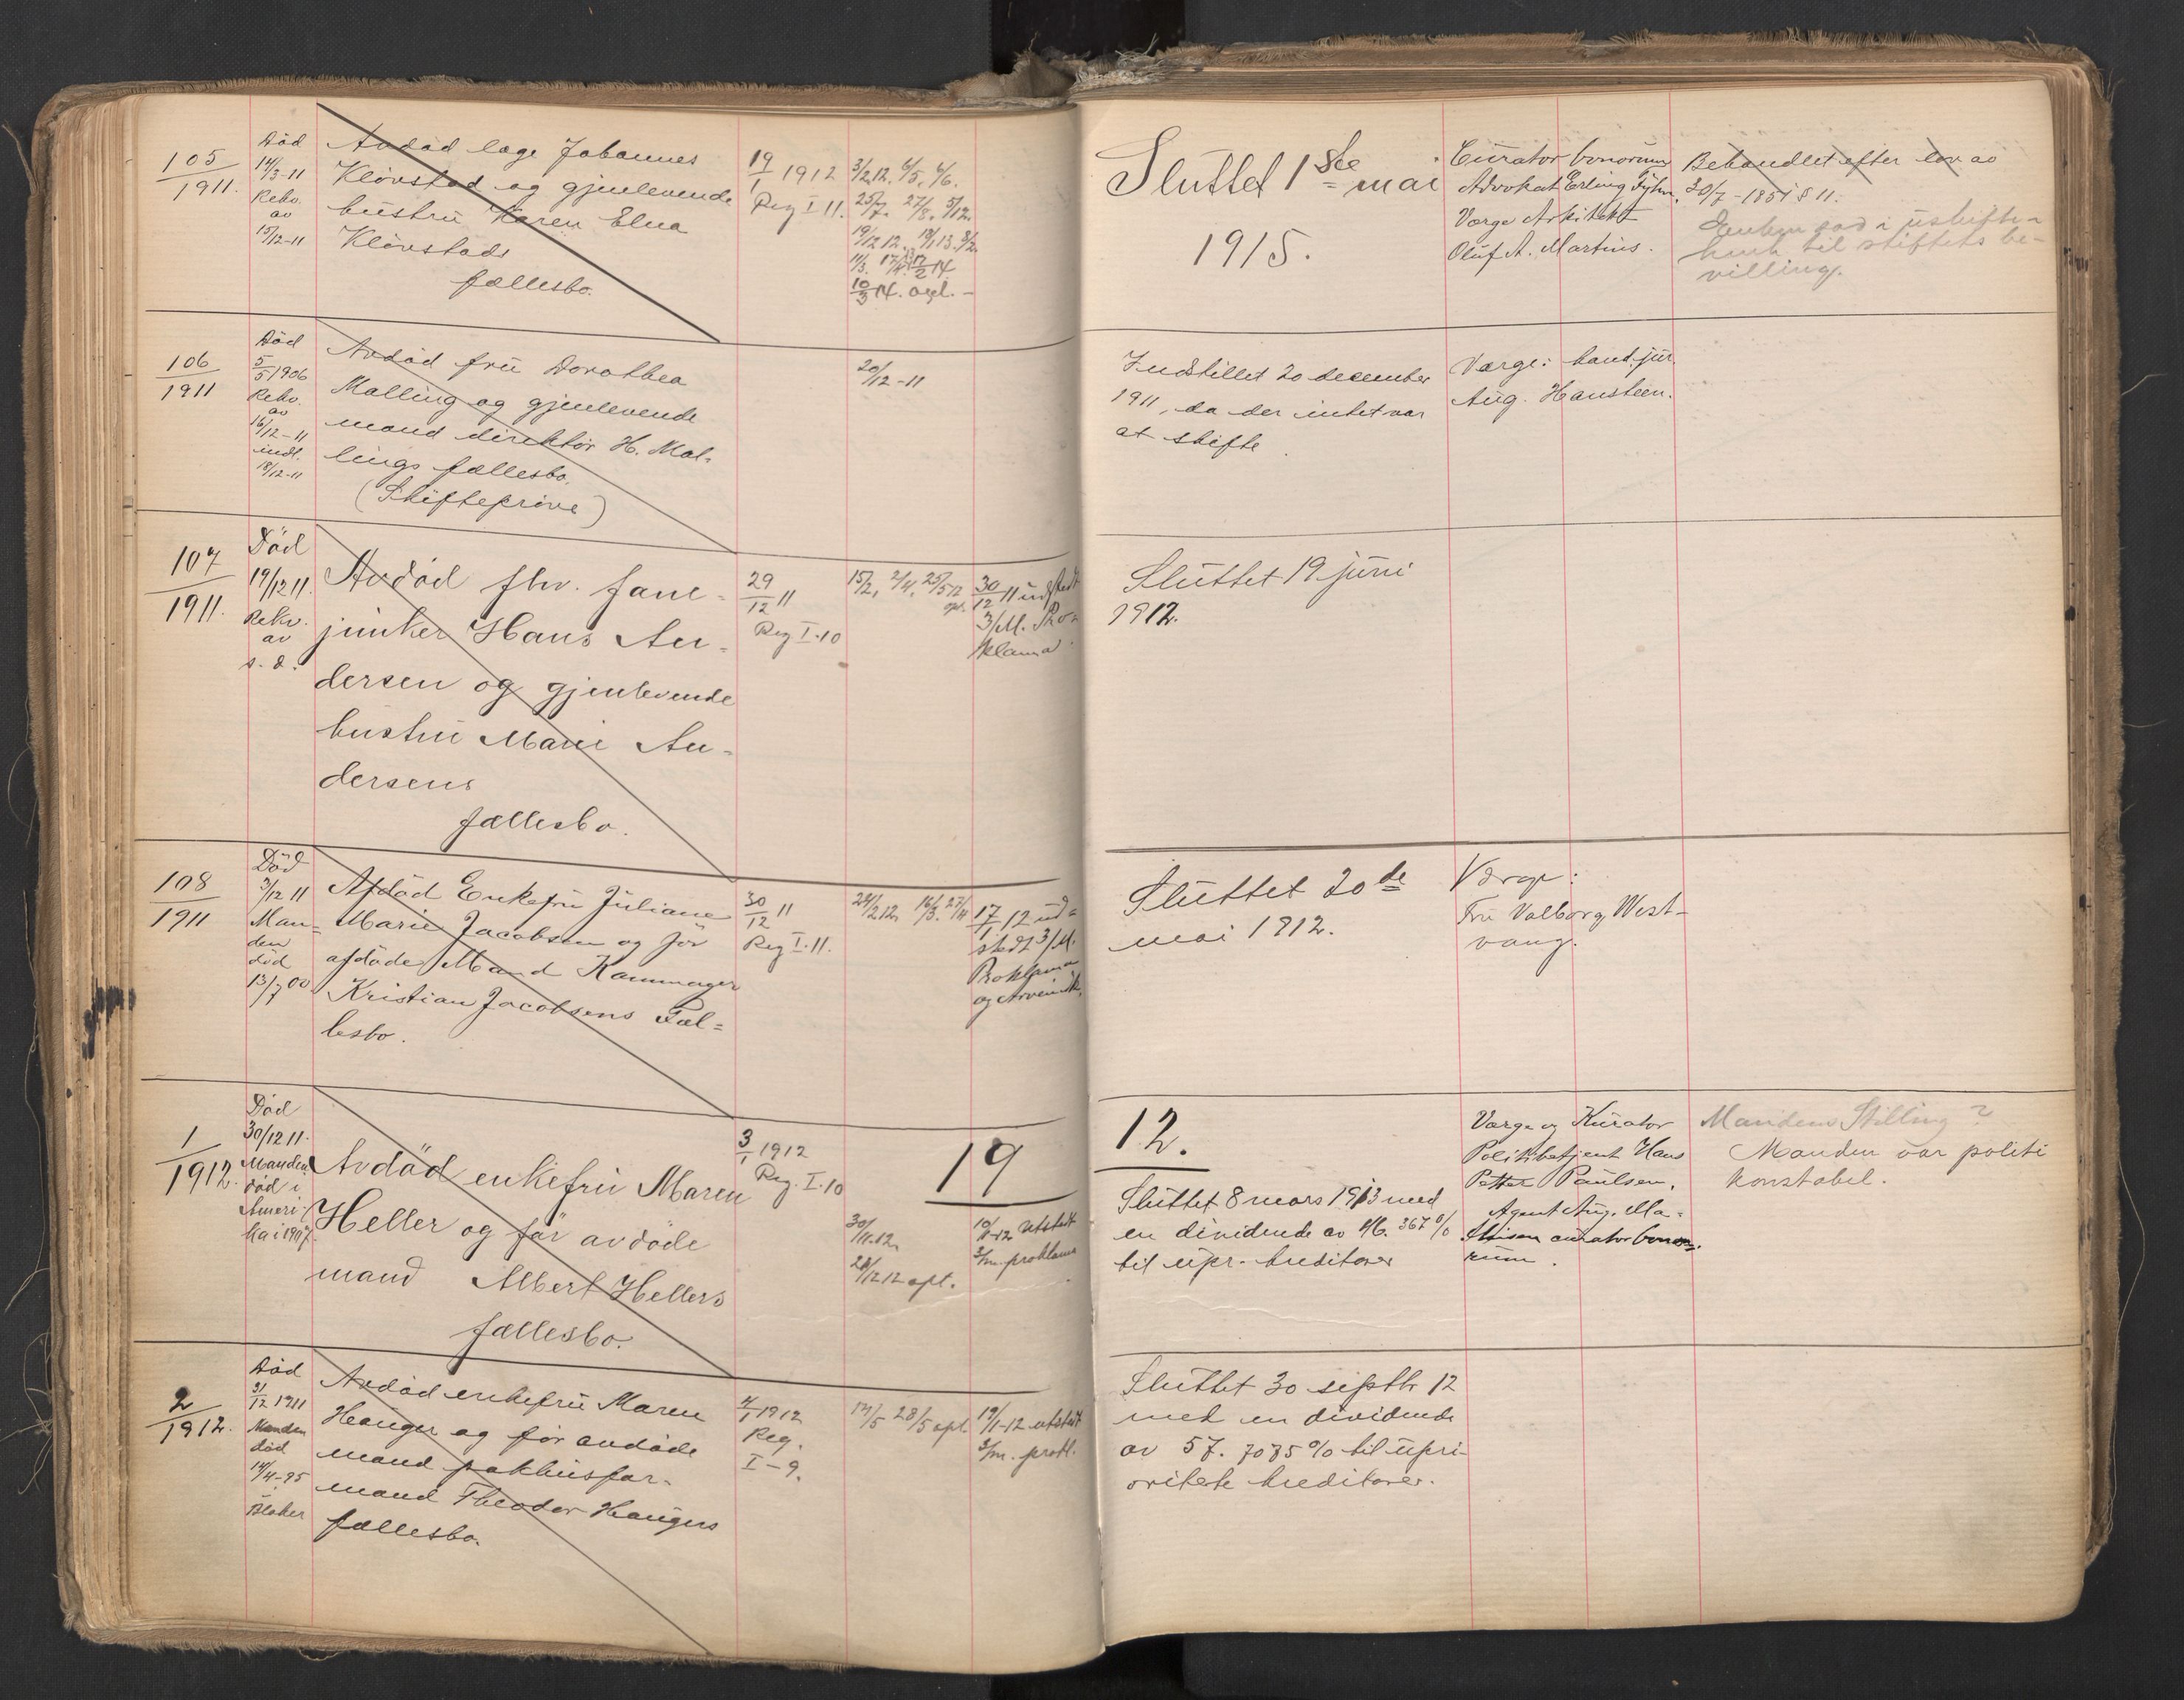 105
1911.
Död
14/3-11
Rekv.
av
15/12-11
Avdöd læge Johannes
Klövstad og gjenlevende
hustru Karen Elna
Klövstads
fællesbo.
19/1 1912
Reg I-11.
3/2 12. 6/5. 4/6.
25/7. 27/8. 5/12.
19/12 12. 19/1 13. 3/2.
10/3 14. avsl. -
Sluttet 1ste mai
1915.
Curator bonorum
Advokat Erling
Værge Arkitekt
Oluf A. Martins.
Behandlet efter lov av
30/7-1851 § 11.
til skiftets be-
villing.
106
1911
Död
5/5 1906
Rekv.
av
16/12-11
indl.
18/12-11
Avdöd frü Dorothea
Malling og gjenlevende
mand direktör H. Mal-
lings fællesbo.
(Skiftepröve)
20/12-11
Indstillet 20 december
1911, da der intet var
at skifte
Værge: cand. jur.
Aug. Hansteen.
107
1911.
Död
19/12 11.
Rekv.
av
s. d.
Avdöd fhv. fane-
junker Hans An-
dersen og gjenlevende
hustru Marie An-
dersens
fællesbo.
29/12 11
Reg I-10
15/2. 2/4. 25/5 12
30/12 11 udstedt
3/M. Pro-
klama.
Sluttet 19 juni
1912.
108
1911
Död
3/12 11
Man-
den
död
13/7 00
Afdöd Enkefrü Juliane
Marie Jacobsen og för
afdöde Mand Kammager
Kristian Jacobsens Fæl-
lesbo.
30/12 11
Reg I-11.
17/1 12 ud-
stedt 3/M.
Proklama
Sluttet 20de
mai 1912.
Værge:
Fru Valborg West-
vang.
1
1912.
Död
30/12 11.
Manden
död i
Ameri-
ka i 1907.
Avdöd enkefrü Maren
Heller og för avdöde
mand Albert Hellers
fællesbo.
3/1 1912
Reg. I-10
1912.
30/11.12.
10/1-12 utstedt
3/m. proklama
Sluttet 8 mars 1913 med
en dividende av 46.367 %
til upr. kreditorer
Værge og Kurator
Politibetjent Hans
Petter Paulsen.
Agent Aug. Ma-
thisen curator bono-
rum.
Mandens Stilling?
Manden var politi
konstabel.
2
1912.
Död
31/12 1911
Manden
död
14/4-95
Blaker
Avdöd enkefrü Maren
Hauger og för avdöde
mand pakhusfor-
mand Theodor Haugers
fællesbo.
4/1 1912
Reg.
I-9.
28/5 opt.
19/1-12 utstedt
3/m. prokl.
Sluttet 30 septbr 12
med en dividende
av 57.7085 % til upri-
oritete kreditorer.